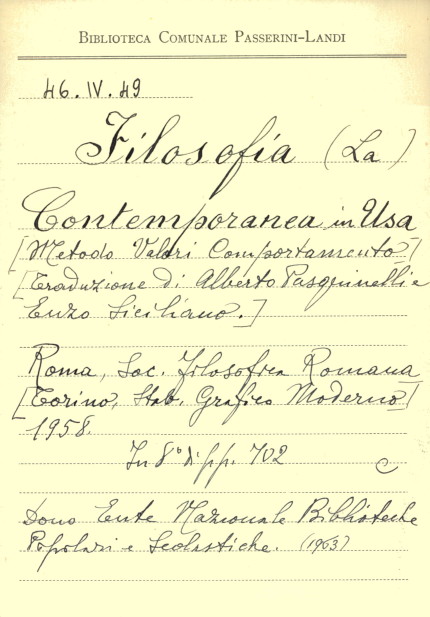 BIBLIOTECA COMUNALE PASSERINI-LANDI
46.IV.49
Filosofia (La)
Contemporanea in Usa
[Metodo Valori Comportamento]
[Traduzione di Alberto Pasquinelli e
Enzo Siciliano.]
Roma, Soc. Filosofica Romana
[Torino, Stab. Grafico Moderno]
1958.
In 8° di pp. 702
C
Dono Ente Nazionale Biblioteche
Popolari e Scolastiche. (1963)